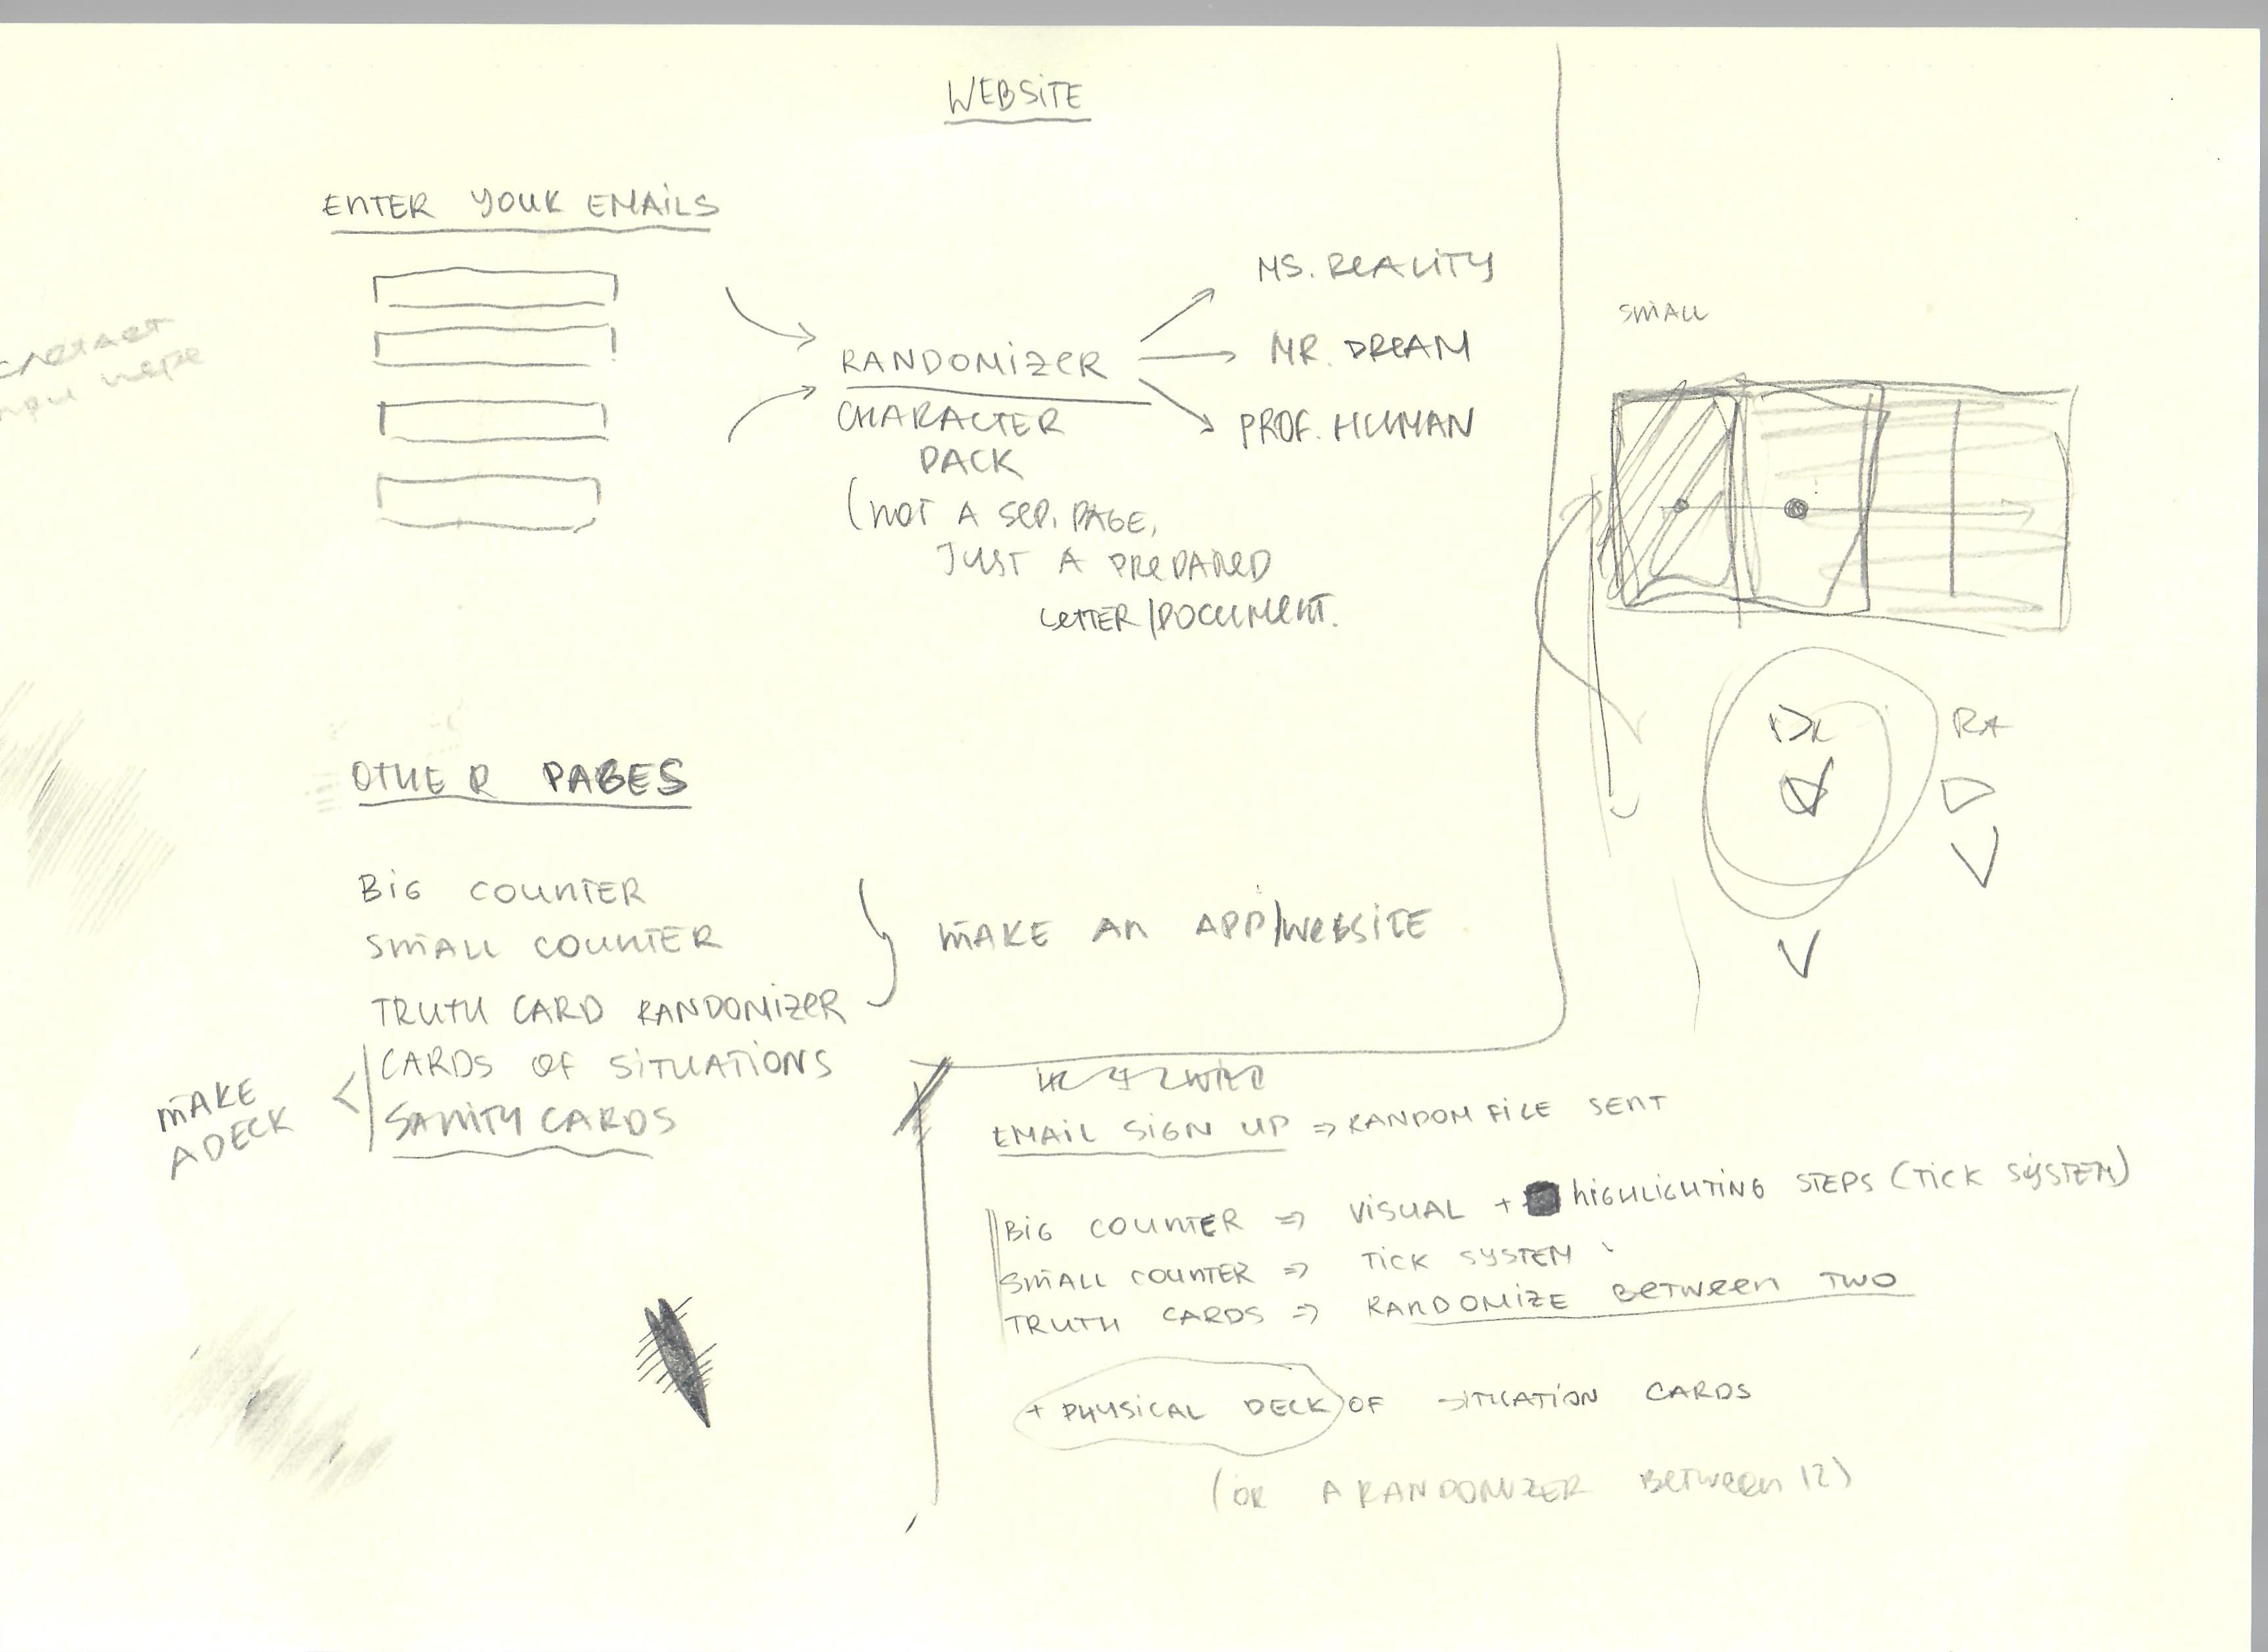 WEBSITE
ENTER YOUR EMAILS
RANDOMIZER
CHARACTER
PACK
(NOT A SEP. PAGE,
JUST A PREPARED
LETTER/DOCUMENT.
MS. REALITY
MR. DREAM
PROF. HUMAN
SMALL
RA
OTHER PAGES
BIG COUNTER
SMALL COUNTER
TRUTH CARD RANDOMIZER
MAKE AN APP/WEBSITE
CARDS OF SITUATIONS
SANITY CARDS
MAKE
A DECK
EMAIL SIGN UP ⇒ RANDOM FILE SENT
BIG COUNTER ⇒ VISUAL + HIGHLIGHTING STEPS (TICK SYSTEM)
SMALL COUNTER ⇒ TICK SYSTEM
TRUTH CARDS ⇒ RANDOMIZE BETWEEN TWO
+ PHYSICAL DECK OF SITUATION CARDS
(OR A RANDOMIZER BETWEEN 12)